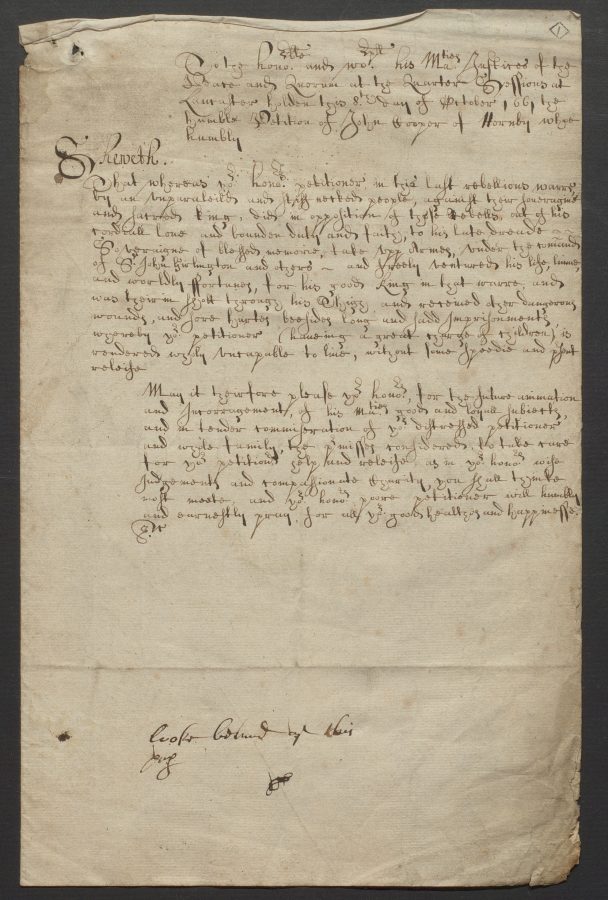 1
To the hono:ble and wo:ll his Ma:ties Justices of the
Peace and Quorum at the Quarter Sessions at
Lancaster holden this 8th day of October 1661 the
humble Petition of John Cooper of Hornby whoe
humbly
Sheweth.
That whereas yor: honors: petitioner in this last rebellious warre
by an unparaleled and stiff necked people, against their soveraigne
and sacred king, did in opposition of those Rebells, out of his
cordiall love and bounden duty and faith, to his late dreade
Soveraigne of blessed memorie, take upp Armes, under the comand
of Sr John Girlington and others and freely ventured his life, limme
and worldly ffortunes, for his good King in that warre, and
was therin shott through his Thigh, and received other dangerous
wounds, and sore hurtes beesides long and sadd Imprisonments,
whereby yor: petitioner (haveing a great charge of children) is
rendered wholy uncapable to live, without some speedie and psent
releife
May it therfore please yor: honors:, for the future animation
and Incorragement, of his Ma:ties good and loyall subiects,
and in tender commiseration of yor: distressed petitioner
and whole family, the pmisses considered, to take care
for yor: petitionrs help and releife, as in yor: honors: wise
Judgements and compassionate Charity, you shall thinke
most meete, and yor: honors: poore petitioner will humbly
and earnestly pray, for all yor: good healthes and happinesse.
&c
looke behind of this